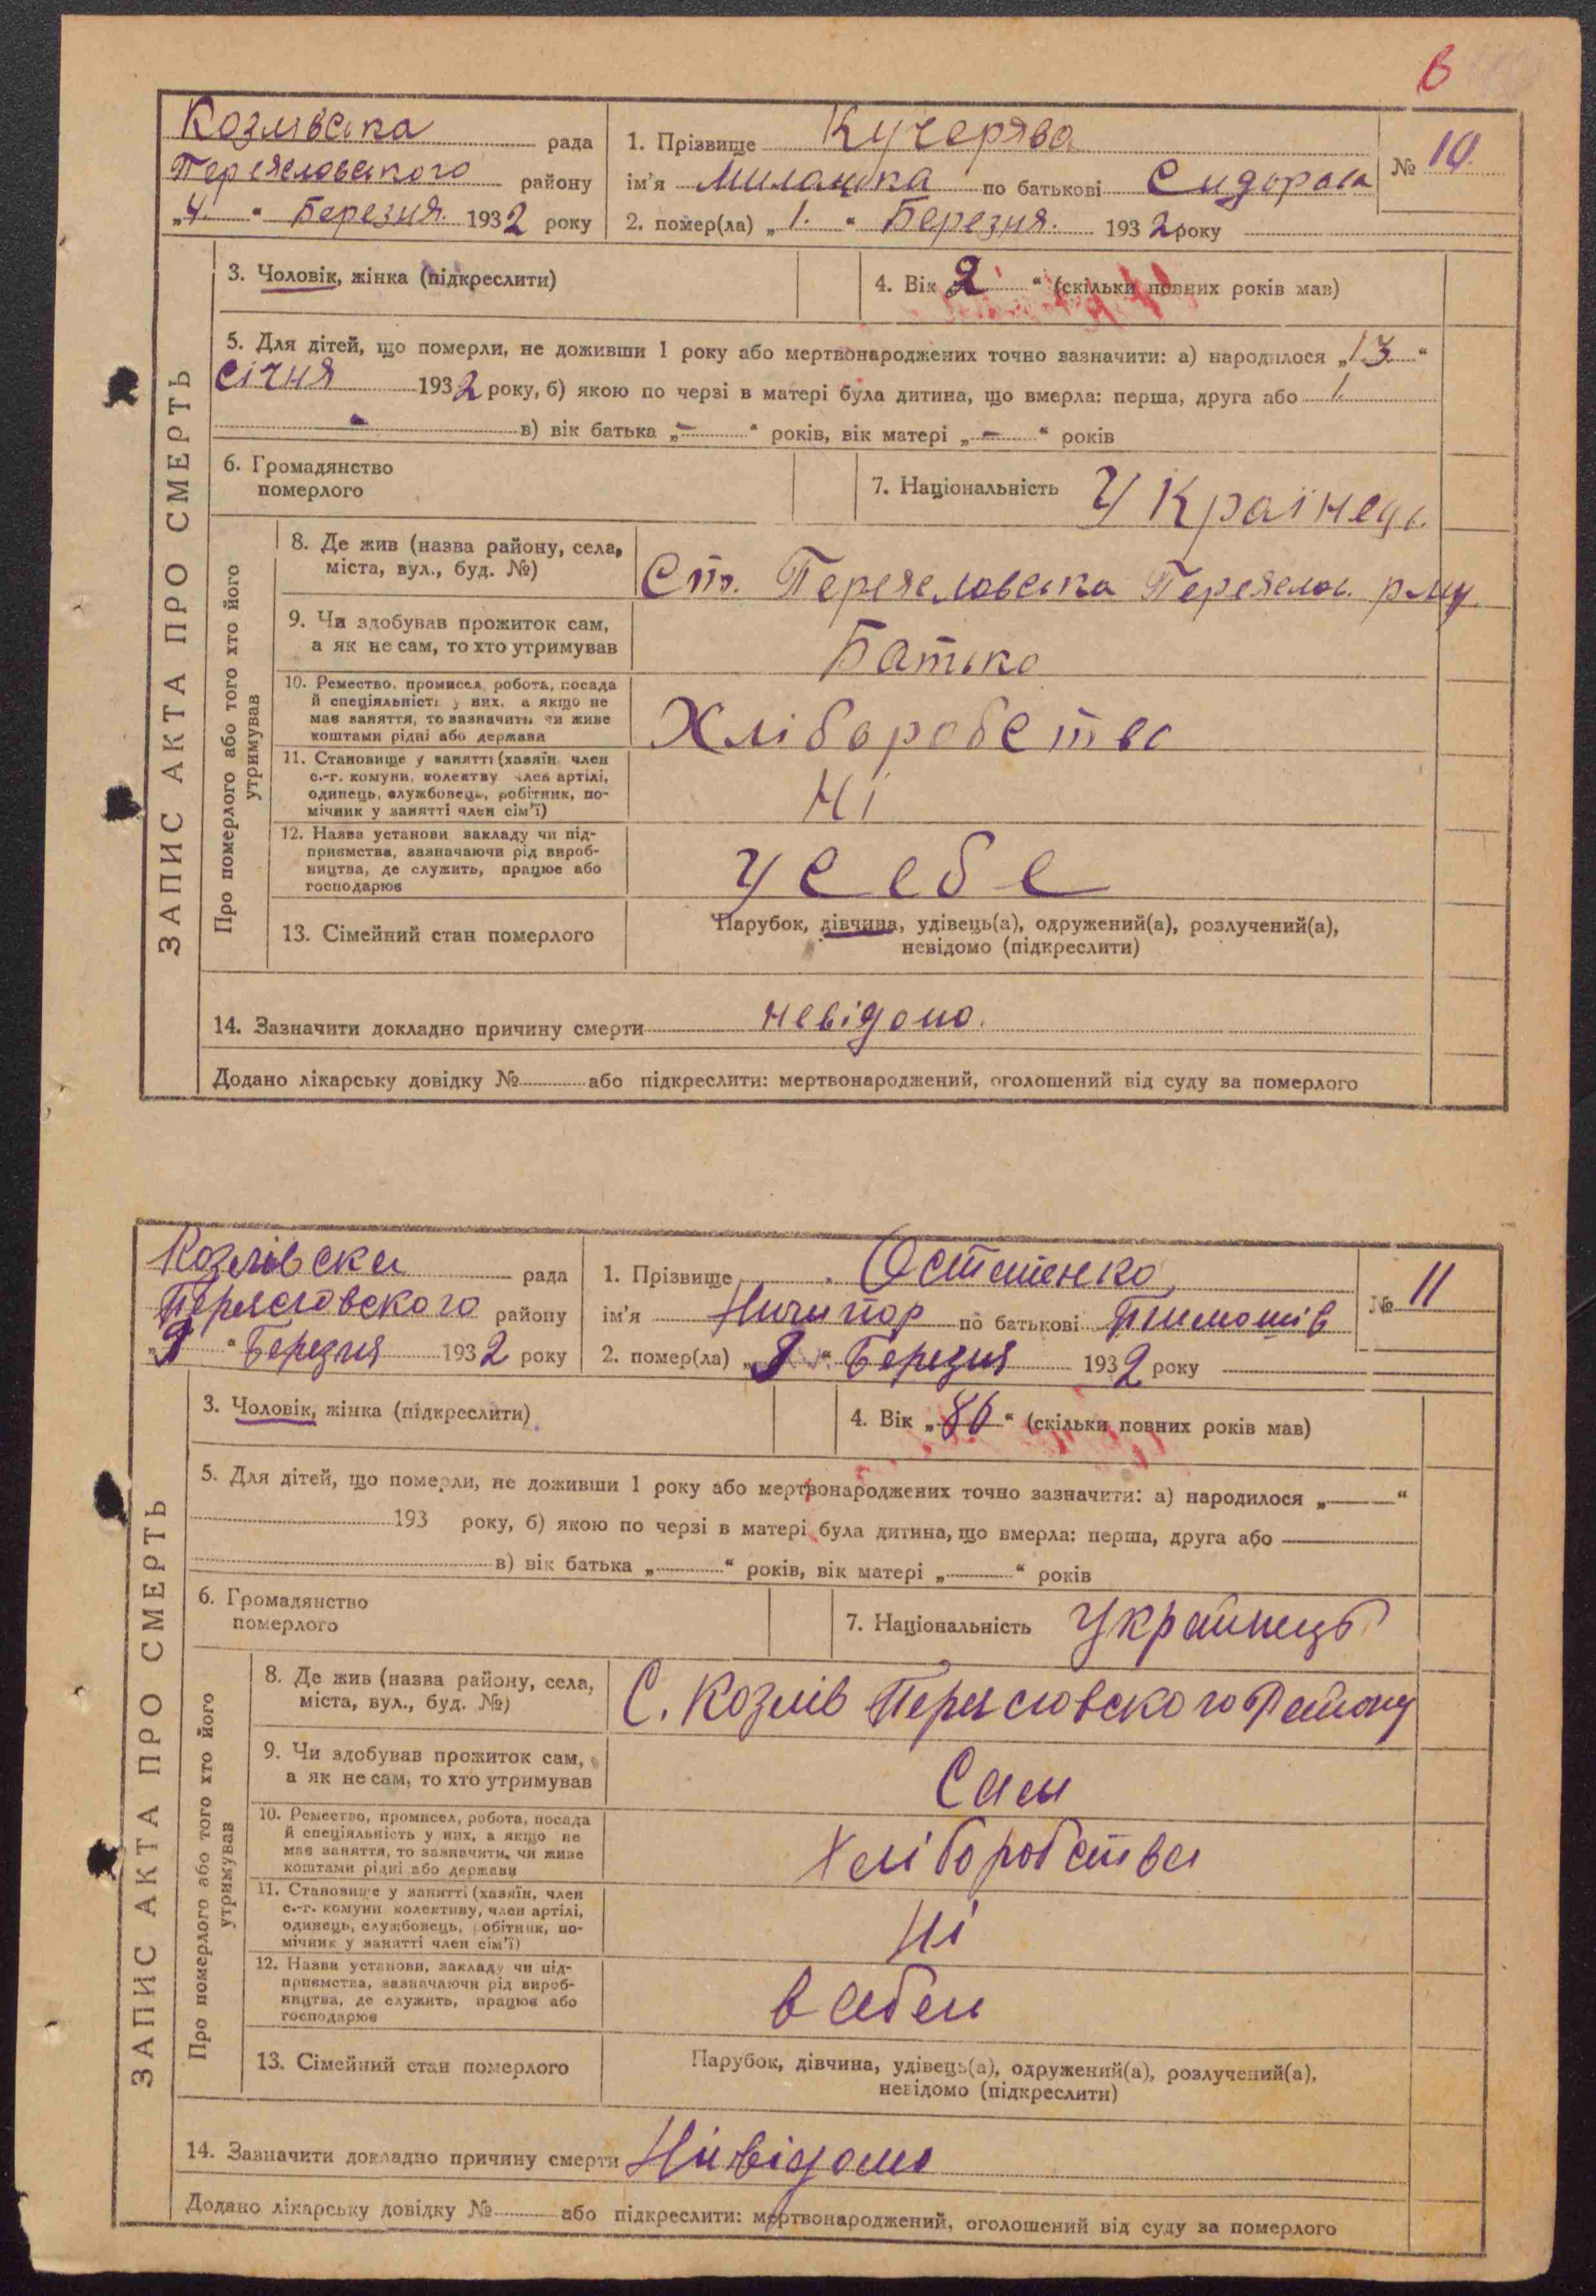 6
Козлівска рада
Переясловського району
„4.“ Березня. 1932 року
1. Прізвище Кучерява
ім'я Миланка по батькові Сидоров
2. помер(ла) „1.“ Березня. 1932 року
№ 10.
3. Чоловік, жінка (підкреслити)
4. Вік „2“ (скільки повних років мав)
5. Для дітей, що померли, не доживши 1 року або мертвонароджених точно зазначити: а) народилося „13“
січня 1932 року, б) якою по черзі в матері була дитина, що вмерла: перша, друга або 1.
- в) вік батька „-“ років, вік матері „-“ років
6. Громадянство
померлого
7. Національність Українець.
8. Де жив (назва району, села,
міста, вул., буд. №)
Ст. Переясловська Переяслов. р-ну.
9. Чи здобував прожиток сам,
а як не сам, то хто утримував
Батько
10. Ремество, промисел, робота, посада
й спеціяльність у них, а якщо не
має заняття, то зазначить чи живе
коштами рідні або держави
Хліборобство
11. Становище у занятті (хазяїн, член
с.-г. комуни, колективу член артілі,
одинець, службовець, робітник, по-
мічник у занятті член сім'ї)
Ні
12. Назва установи закладу чи під-
приємства, зазначаючи рід вироб-
ництва, де служить, працює або
господарює
У себе
13. Сімейний стан померлого
Парубок, дівчина, удівець(а), одружений(а), розлучений(а),
невідомо (підкреслити)
14. Зазначити докладно причину смерти невідомо.
Додано лікарську довідку № або підкреслити: мертвонароджений, оголошений від суду за померлого
ЗАПИС АКТА ПРО СМЕРТЬ
Про померлого або того хто його
утримував
Козлівска рада
Переясловского району
„9“ Березня 1932 року
1. Прізвище Осташенко
ім'я Ничипор по батькові Тимошів
2. помер(ла) „8“ Березня 1932 року
№ 11
3. Чоловік, жінка (підкреслити)
4. Вік „86“ (скільки повних років мав)
5. Для дітей, що померли, не доживши 1 року або мертвонароджених точно зазначити: а) народилося „—“
193 року, б) якою по черзі в матері була дитина, що вмерла: перша, друга або
в) вік батька „ “ років, вік матері „ “ років
6. Громадянство
померлого
7. Національність Украинець
8. Де жив (назва району, села,
міста, вул., буд. №)
С. Козлів Переясловского Району
9. Чи здобував прожиток сам,
а як не сам, то хто утримував
Сам
10. Ремество, промисел, робота, посада
й спеціяльність у них, а якщо не
має заняття, то зазначити, чи живе
коштами рідні або держави
Хліборобства
11. Становище у занятті (хазяїн, член
с.-г. комуни колективу, член артілі,
одинець, службовець, робітник, по-
мічник у занятті член сім'ї)
Ні
12. Назва установи, закладу чи під-
приємства, зазначаючи рід вироб-
ництва, де служить, працює або
господарює
в себе
13. Сімейний стан померлого
Парубок, дівчина, удівець(а), одружений(а), розлучений(а),
невідомо (підкреслити)
14. Зазначити докладно причину смерти Нивідомо
Додано лікарську довідку № або підкреслити: мертвонароджений, оголошений від суду за померлого
ЗАПИС АКТА ПРО СМЕРТЬ
Про померлого або того хто його
утримував